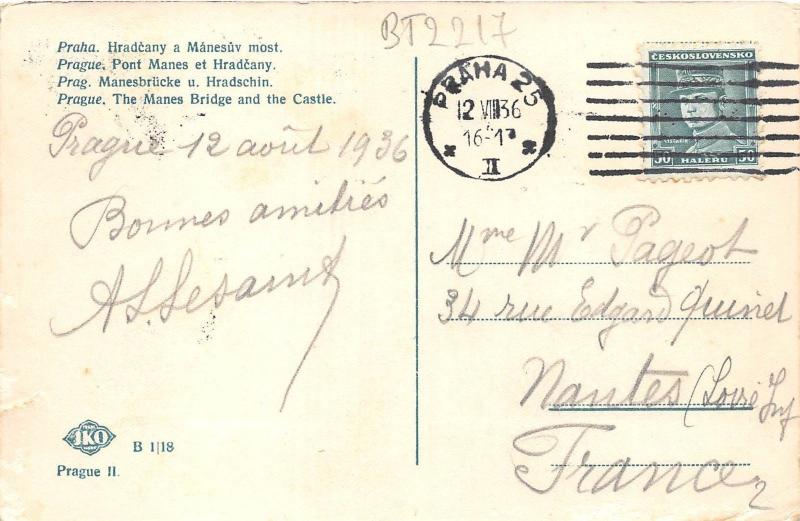 BT2217
Praha. Hradčany a Mánesův most.
Prague. Pont Manes et Hradčany.
Prag. Manesbrücke u. Hradschin.
Prague. The Manes Bridge and the Castle.
Prague 12 août 1936
Bonnes amitiés
A. Lesaint
PRAHA 25
12 VIII 36
16-17
II
ČESKOSLOVENSKO
50 HALÉŘŮ 50
Mme Mr Pageot
34 rue Edgard Quinet
Nantes (Loire Inf
France
JKO
B 1|18
Prague II.